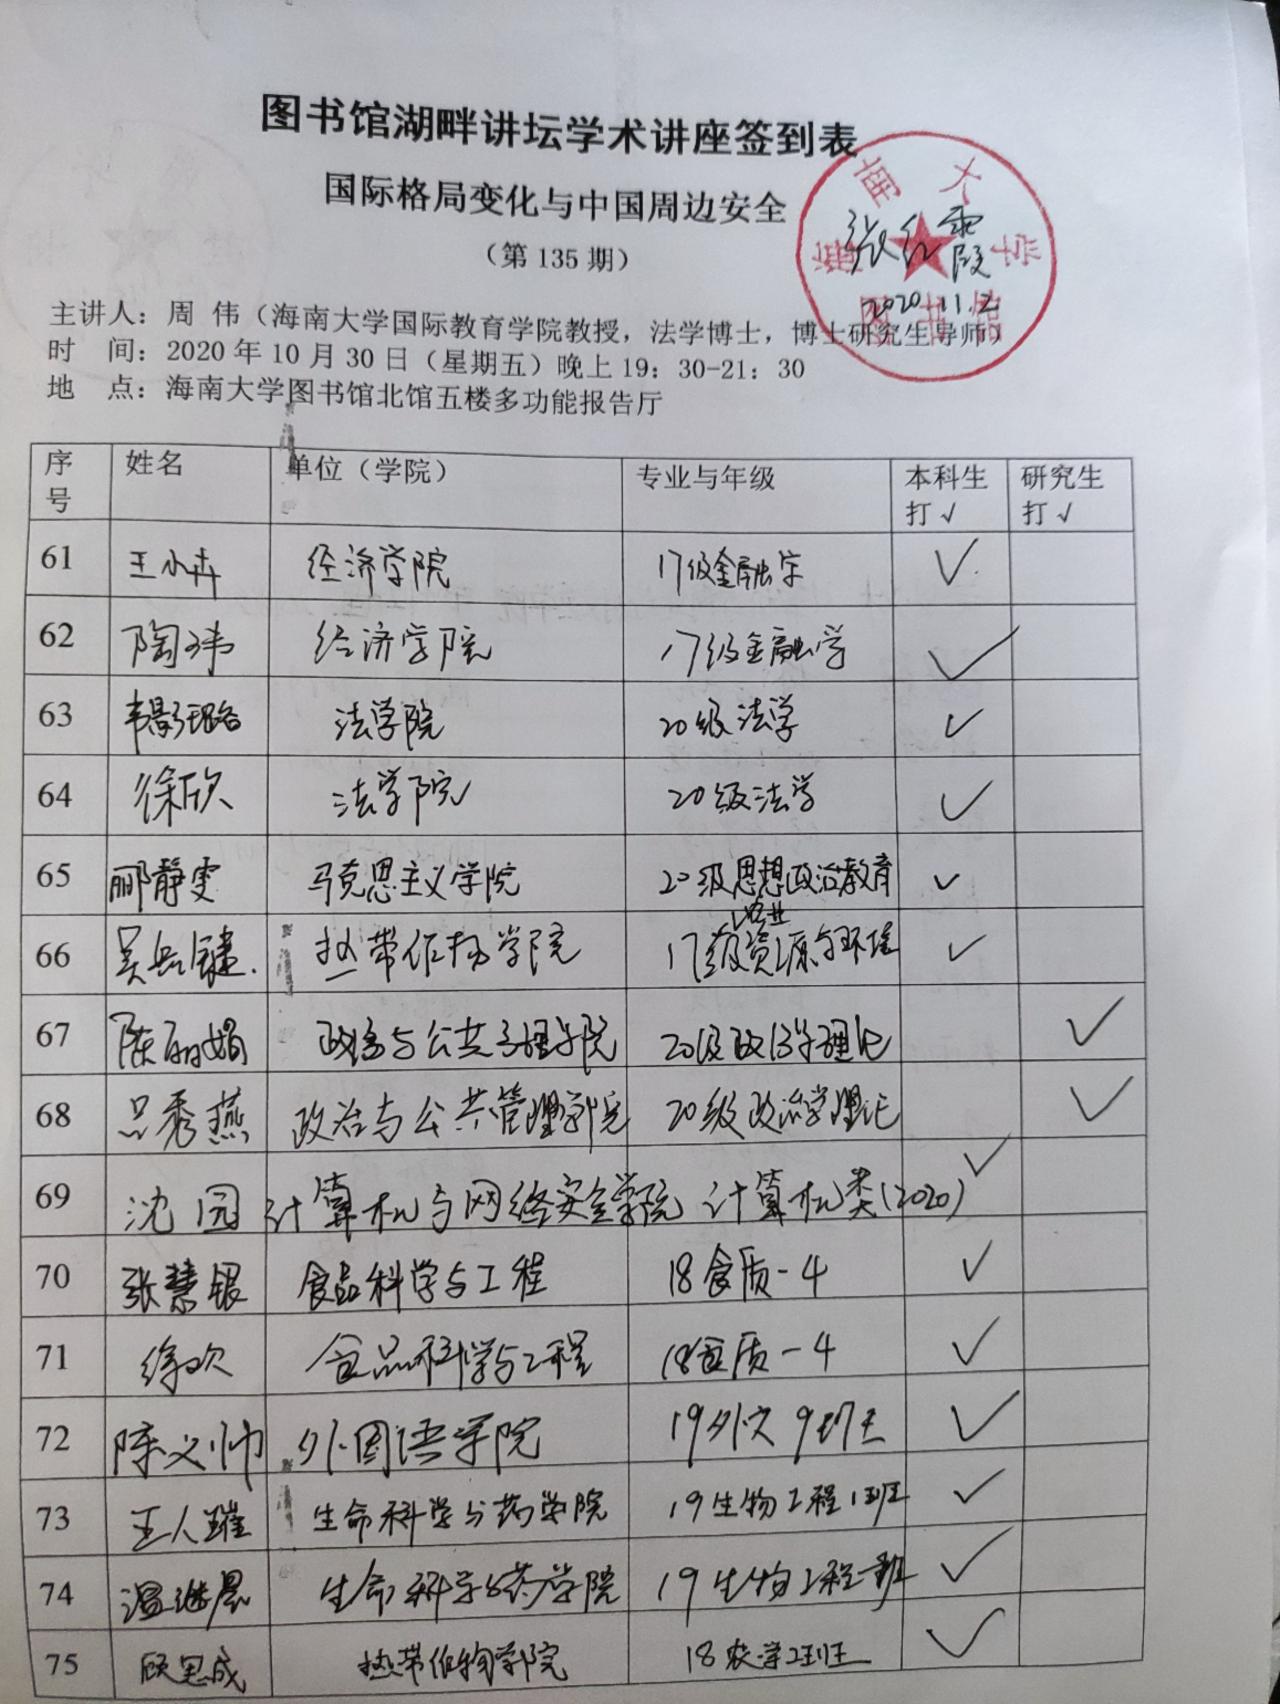 图书馆湖畔讲坛学术讲座签到表
国际格局变化与中国周边安全
（第 135 期）
海南大学
图书馆
张红霞
2020.11.2
主讲人：周 伟（海南大学国际教育学院教授，法学博士，博士研究生导师）
时 间：2020 年 10 月 30 日（星期五）晚上 19：30-21：30
地 点：海南大学图书馆北馆五楼多功能报告厅
序号 姓名 单位（学院） 专业与年级 本科生打√ 研究生打√
61 王小卉 经济学院 17级金融学 √
62 陶玮 经济学院 17级金融学 √
63 韦影璐 法学院 20级法学 √
64 徐欣 法学院 20级法学 √
65 郦静雯 马克思主义学院 20级思想政治教育 √
66 热带作物学院 17级农业资源与环境 √
67 陈丽娟 政治与公共管理学院 20级政治学理论 √
68 吕秀燕 政治与公共管理学院 20级政治学理论 √
69 沈园 计算机与网络安全学院 计算机类(2020) √
70 张慧银 食品科学与工程 18食质-4 √
71 徐欢 食品科学与工程 18食质-4 √
72 陈义帅 外国语学院 19外文9班 √
73 王人璀 生命科学与药学院 19生物工程1班 √
74 温继晨 生命科学与药学院 19生物工程一班 √
75 顾思成 热带作物学院 18农学2班 √